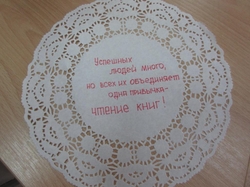 Успешных
людей много,
но всех их объединяет
одна привычка-
чтение книг!